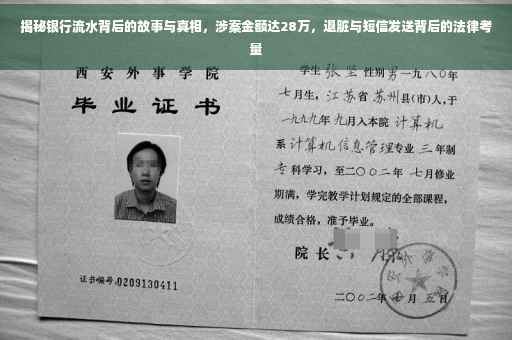 揭秘银行流水背后的故事与真相，涉案金额达28万，退赃与短信发送背后的法律考
量
西安外事学院
毕业证书
证书编号:0209130411
学生张坚性别男一九八0年
七月生，江苏省苏州县(市)人,于
一九九九年九月入本院计算机
系计算机信息管理专业三年制
专科学习，至二〇〇二年七月修业
期满，学完教学计划规定的全部课程，
成绩合格，准予毕业。
院长
二〇〇二年七月五日